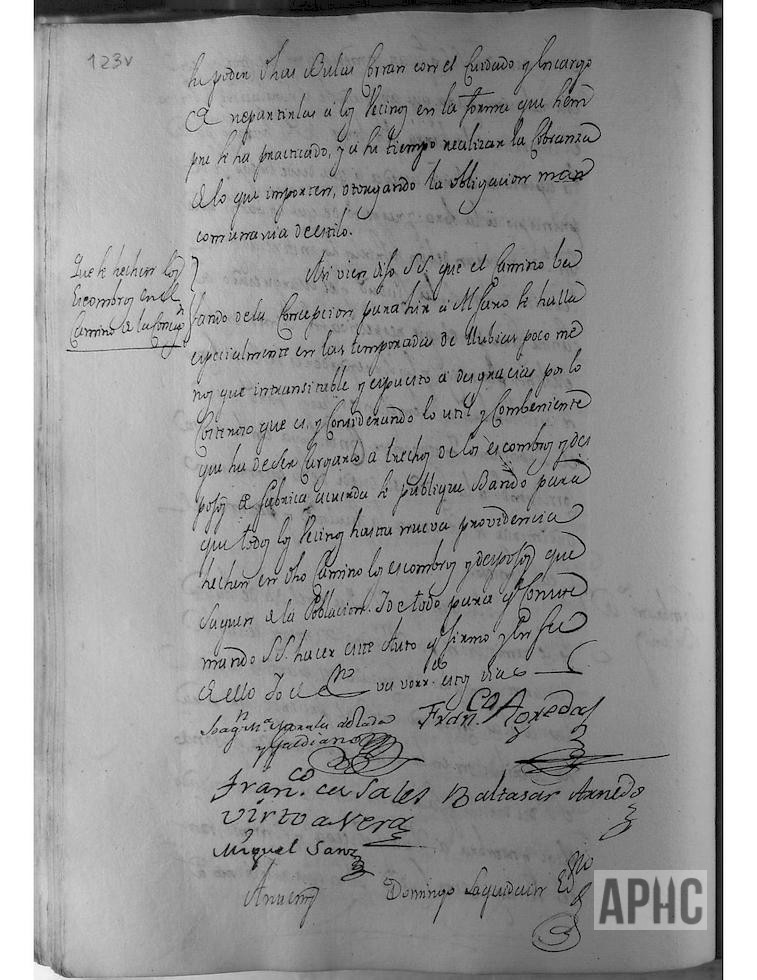 123v
se poden dhas Bulas Corran con el Cuidado y Encargo
de repartirlas a los Vecinos en la forma que siem
pre se ha practicado, y a su tiempo realizar la Cobranza
de lo que importen, otorgando la obligacion man
comunnaria de estilo.
Que se hechen los
Escombros en el
Camino de la Concepn
Asi vien dijo S.S. que el Camino ba
jando de la Concepcion para hir a
se halla
especialmente en las temporadas de llubias poco me
nos que intransitable y espuesto a desgracias por lo
Costeroso que es, y Considerando lo util y Combeniente
que ha de ser Cargarlo a trechos de los escombros y des
pojos de fabrica acuerda se publique Bando para
que todos los Vecinos hasta nueva providencia
hechen en dho Camino los escombros y despojos que
saquen de la Poblacion. Y de todo para qe conste
mando S.S. hacer este Auto qe firmo y En fee
de ello Yo el Eno
Joaqn
y Galdiano
Franco. Aoredas
Franco. de Sales
Baltasar Arnedo
Virto de Vera
Miguel Sanz
Antemi
Domingo Laquidain Eno
APHC